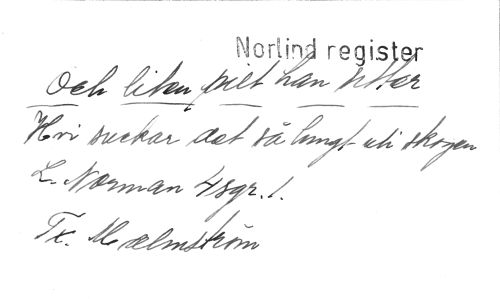 Norlind register
Och liten piet han sitter
Hvi suckar det så tungt uti skogen
L. Norman 4 sgr. 1.
Tx. Malmström